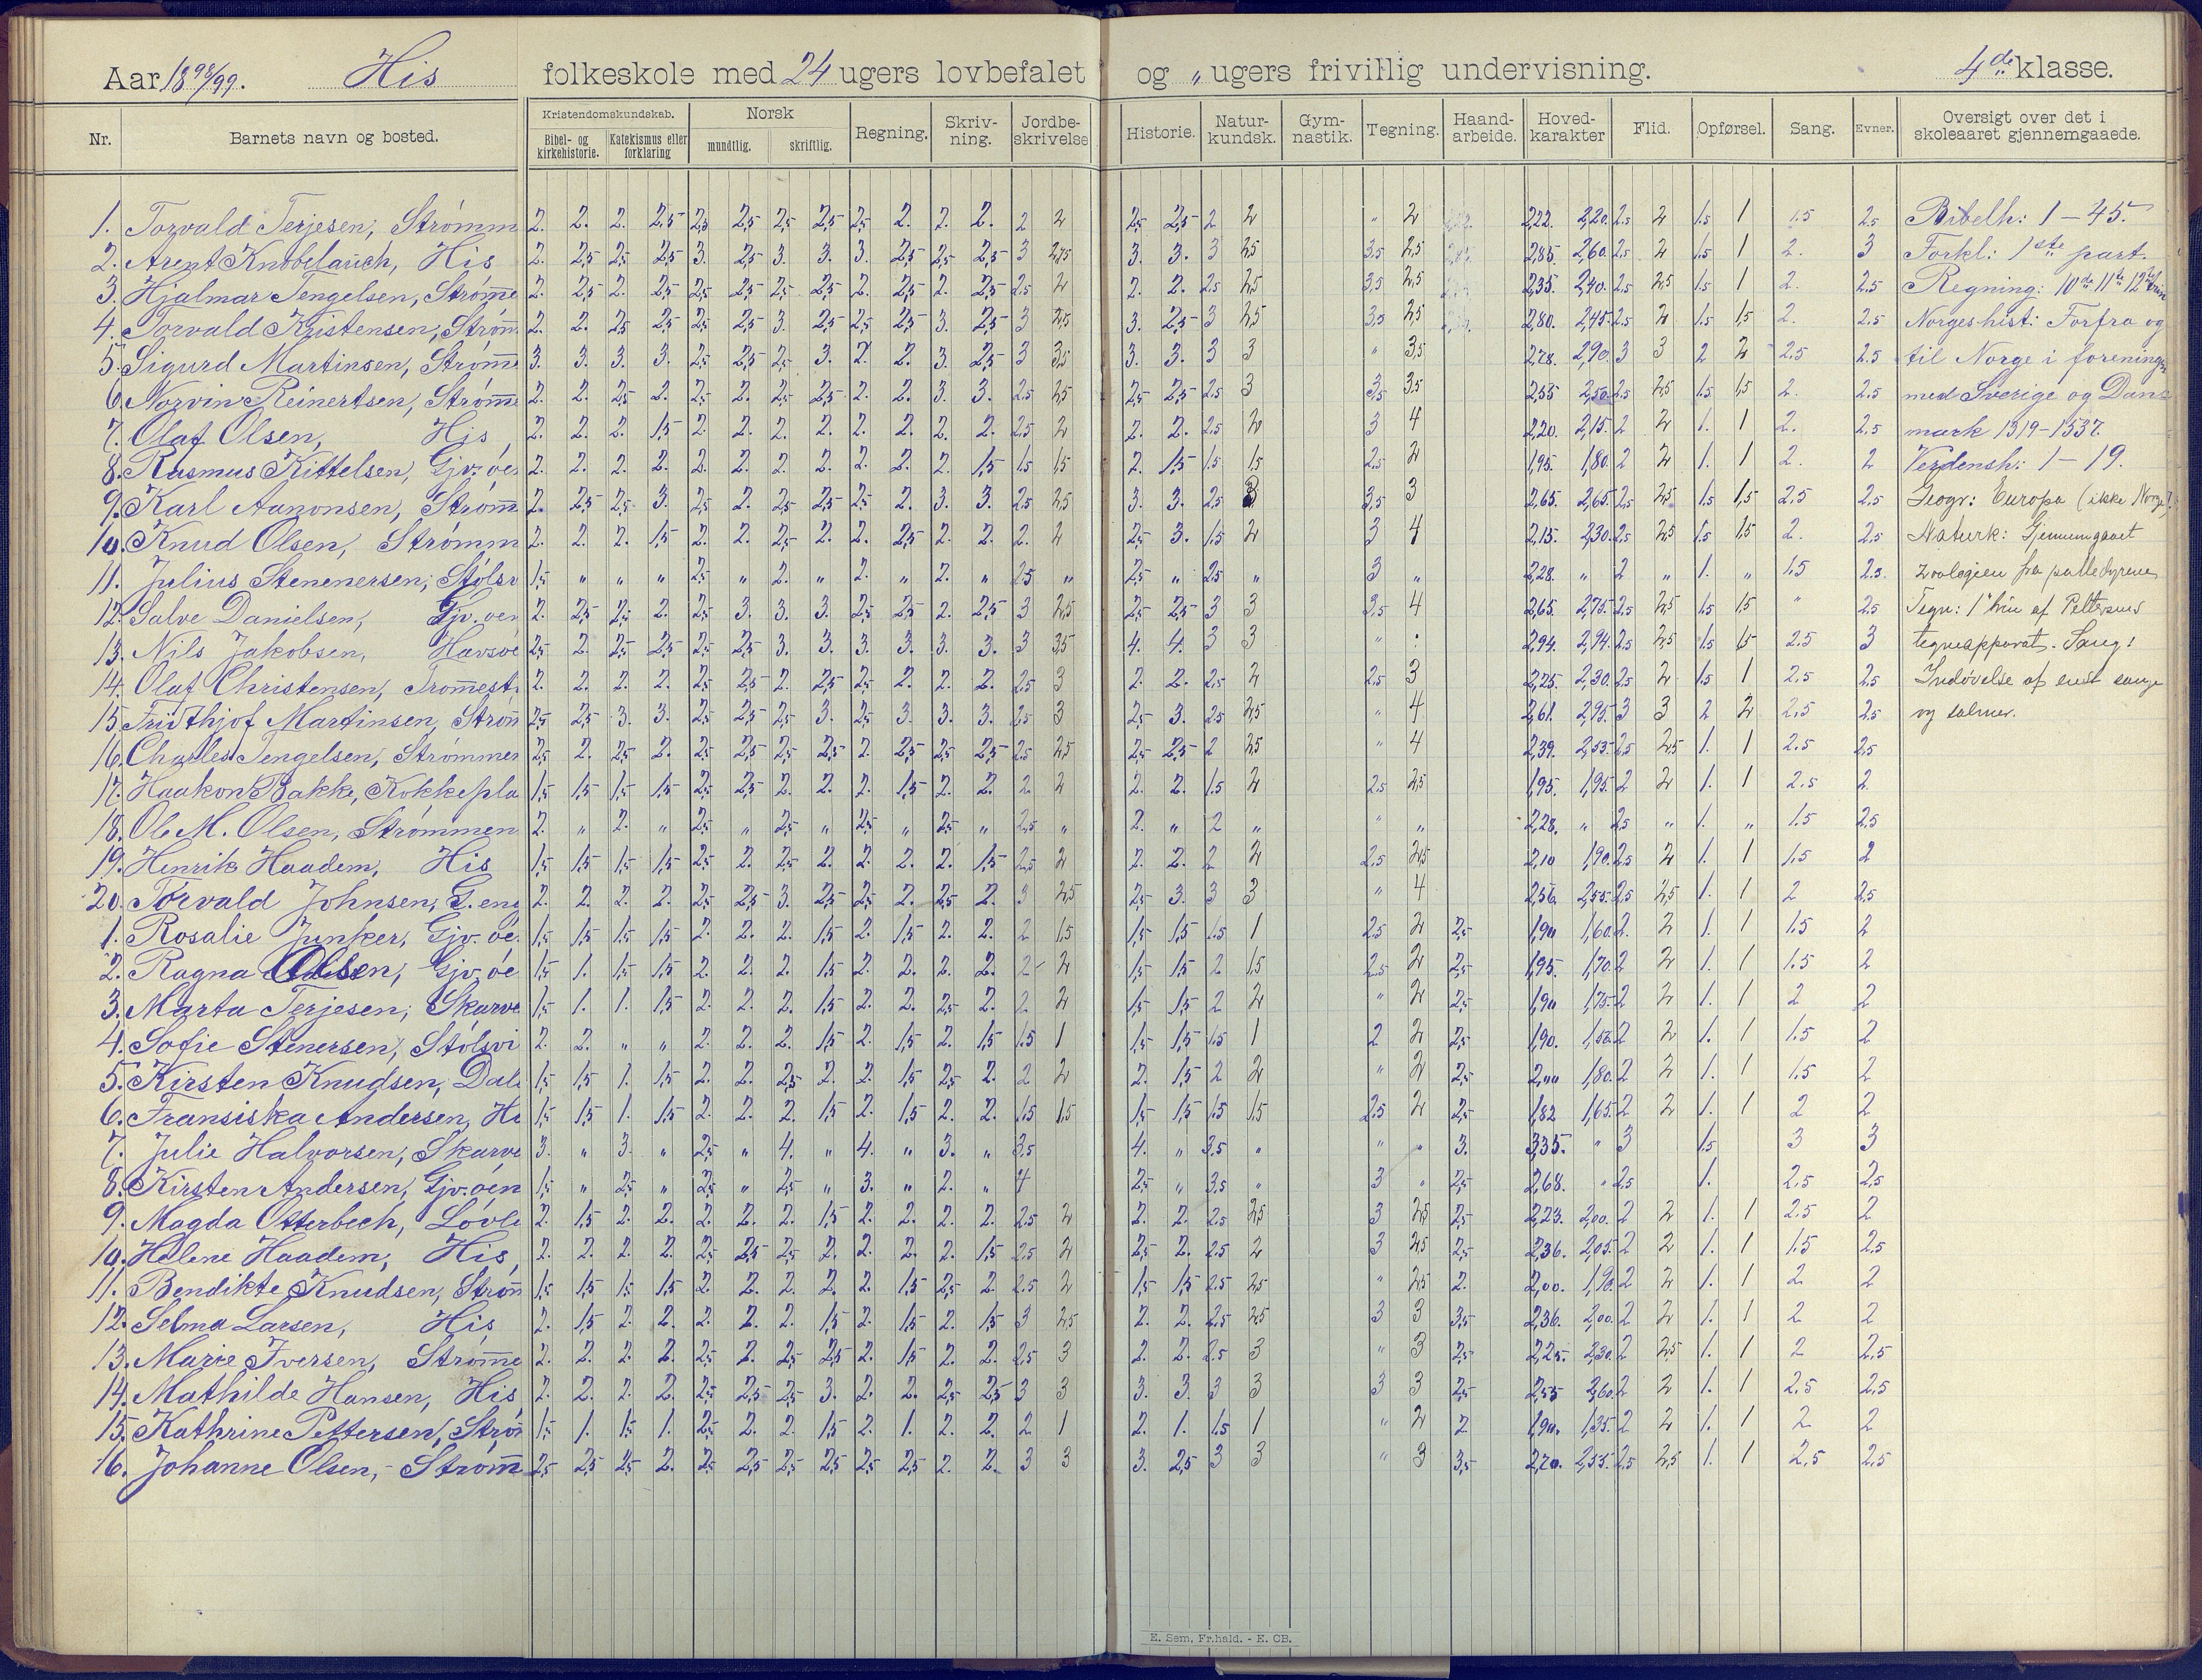 Aar 1898/99. His folkeskole med 24 ugers lovbefalet og „ ugers frivillig undervisning. 4de klasse.
Nr. Barnets navn og bosted. Kristendomskundskab. Bibel- og kirkehistorie. Katekismus eller forklaring Norsk mundtlig. skriftlig. Regning. Skriv-ning. Jordbe-skrivelse Historie. Natur-kundsk. Gym-nastik. Tegning. Haand-arbeide. Hoved-karakter Flid. Opførsel. Sang. Evner. Oversigt over det i skoleaaret gjennemgaaede.
1. Torvald Terjesen, Strømm 2. 2. 2. 2,5 2,5 2,5 2,5 2,5 2,5 2. 2. 2. 2 2 2,5 2,5 2 2 „ 2 2,22. 2,20. 2.5 2 1.5 1 1.5 2.5 Bibelh: 1–45.
2. Arent Knobelauch, His 2. 2,5 2,5 2,5 3. 2,5 3. 3. 3. 2,5 2,5 2,5 3 2,75 3. 3. 3 2,5 3,5 2,5 2,85. 2,60. 2.5 2 1.5 1 2. 3 Forkl: 1ste part.
3. Hjalmar Tengelsen, Strømme 2. 2,5 2. 2,5 2,5 2,5 2,5 2,5 2. 2,5 2. 2,5 2.5 2 2. 2. 2.5 2,5 3,5 2,5 2,35. 2,40. 2.5 2,5 1.5 1 2. 2.5 Regning: 10de 11te 12te trin
4. Torvald Kristensen, Strømm 2. 2. 2,5 2,5 2,5 2,5 3. 2,5 2,5 2,5 3. 2,5 3 2,5 3. 2,5 3 2,5 3,5 2,5 2,80. 2,45. 2.5 2 1.5 1,5 2. 2.5 Norgeshist: Forfra og
5. Sigurd Martinsen, Strømme 3. 3. 3. 3. 2,5 2,5 2,5 3. 2. 2. 3. 2,5 3 3,5 3. 3. 3 3 „ 3,5 2,78. 2,90. 3 3 2 2 2.5 2.5 til Norge i forening
6. Norvin Reinertsen, Strømme 2. 2. 2,5 2. 2,5 2. 2,5 2,5 2. 2. 3. 3. 2.5 2,5 2,5 2,5 2.5 3 3,5 3,5 2,55 2,50. 2.5 2,5 1.5 1,5 2. 2.5 med Sverige og Dan
7. Olaf Olsen, His 2. 2. 2. 1,5 2. 2. 2. 2. 2. 2. 2. 2. 2.5 2 2. 2. 2.5 2 3 4 2,20. 2,15. 2 2 1. 1 2. 2.5 mark 1319–1537.
8. Rasmus Kittelsen, Gjv.øe 2. 2. 2. 2. 2. 2. 2. 2. 2. 2. 2. 1,5 1.5 1,5 2. 1,5 1.5 1,5 2.5 2 1,95. 1,80. 2 2 1. 1 2. 2 Verdensh: 1–19.
9. Karl Aanonsen, Strømm 2. 2,5 2,5 3. 2,5 2. 2,5 2,5 2,5 2. 3. 3. 2.5 2,5 3. 3. 2.5 3 3,5 3 2,65. 2,65. 2.5 2,5 1.5 1,5 2.5 2.5 Geogr: Europa (ikke Norge).
10. Knud Olsen, Strømm 2. 2. 2. 1,5 2. 2. 2,5 2. 2. 2,5 2. 2. 2. 2 2,5 3. 1.5 2 3 4 2,15. 2,30. 2.5 2,5 1.5 1,5 2. 2.5 Naturk: Gjennemgaaet
11. Julius Stenenersen, Stølsv 1,5 „ „ „ 2,5 „ 2. „ 2. „ 2. „ 2.5 „ 2,5 „ 2.5 „ 3 „ 2,28. „ 2 „ 1. „ 1.5 2.5. zoologien fra pattedyrene
12. Salve Danielsen, Gjv.øen 2. 2,5 2,5 2. 2,5 3. 3. 3. 2,5 2,5 2. 2,5 3 2,5 2,5 2,5 3 3 3,5 4 2,65. 2,75. 2.5 2,5 1.5 1,5 „ 2.5 Tegn: 1' trin af Pettersens
13. Nils Jakobsen, Havsøe 2,5 2. 2,5 2,5 2,5 2,5 3. 3. 3. 3. 3. 3. 3 3,5 4. 4. 3 3 „ : 2,94. 2,94. 2.5 2,5 1.5 1,5 2.5 3 tegneapparat. Sang:
14. Olaf Christensen, Tromest 2. 2. 2. 2. 2,5 2,5 2. 2,5 2,5 2. 2. 2. 2.5 3 2. 2. 2.5 2 2.5 3 2,25. 2,30. 2.5 2 1.5 1 2.5 2.5 Indøvelse af enst. sange
15. Fridthjof Martinsen, Strøm 2,5 2,5 3. 3. 2,5 2,5 2,5 3. 2,5 3. 3. 3. 2.5 3 2,5 3. 2.5 2,5 „ 4 2,61. 2,95. 3 3 2 2 2.5 2.5 og salmer.
16. Charles Tengelsen, Strømmen 2,5 2. 2,5 2. 2,5 2,5 2,5 2,5 2. 2,5 2,5 2,5 2.5 2,5 2,5 2,5 2 2,5 „ 4 2,39. 2,55. 2.5 2,5 1. 1 2.5 2,5
17. Haakon Bakke, Kokkepla 1,5 1,5 1,5 1,5 2,5 2,5 2. 2. 2. 1,5 2. 2. 2 2 2. 2. 1.5 2 2.5 2,5 1,95. 1,95. 2 2 1. 1 2.5 2
18. Ole M. Olsen, Strømmen 2. „ 2. „ 2,5 „ 2,5 „ 2,5 „ 2,5 „ 2.5 „ 2. „ 2 „ „ „ 2,28. „ 2,5 „ 1. „ 1.5 2.5
19. Henrik Haadem, His 1,5 1,5 1,5 1,5 2,5 2. 2,5 2. 2. 2. 2. 1,5 2.5 2 2. 2. 2 2 2.5 2,5 2,10 1,90. 2.5 2 1. 1 1.5 2
20. Torvald Johnsen, G.eng 2. 2. 2. 2. 2,5 2,5 3. 2,5 2,5 2. 2,5 2. 3 2,5 2,5 3. 3 3 „ 4 2,56. 2,55. 2.5 2,5 1. 1 2 2.5
1. Rosalie Junker, Gjv.øe 1,5 1,5 1,5 1,5 2. 2. 2. 1,5 2. 1,5 2. 2. 2 1,5 1,5 1,5 1.5 1 2.5 2 2,5 1,90 1,60. 2. 2 1. 1 1.5 2
2. Ragna Olsen, Gjv.øe 1,5 1. 1,5 1,5 2. 2. 2. 1,5 2. 2. 2. 2. 2 2 1,5 1,5 2 1,5 2.5 2 2,5 1,95. 1,70. 2 2 1. 1 1.5 2
3. Marta Terjesen, Skarve 1,5 1. 1. 1,5 2. 2. 2. 1,5 2. 2. 2,5 2. 2 2 1,5 1,5 2 2 „ 2 2,5 1,90 1,75. 2 2 1. 1 2 2
4. Sofie Stenersen, Stølsvi 2. 2. „ „ 2. 2. 2. 1,5 2. 1,5 2. 1,5 1.5 1 1,5 1,5 1.5 1 2 2 2,5 1,90. 2 2 1. 1 1.5 2
5. Kirsten Knudsen, Dale 1,5 1,5 1. 1,5 2. 2. 2,5 2. 2. 1,5 2,5 2. 2 2 2. 1,5 2 2 „ 2 2,5 2,00 1,80. 2 2 1. 1 1.5 2
6. Fransiska Andersen, Hi 1,5 1,5 1. 1,5 2. 2. 2. 1,5 2. 1,5 2. 2. 1.5 1,5 1,5 1,5 1.5 1,5 2.5 2 2,5 1,82 1,65. 2 2 1. 1 2 2
7. Julie Halvorsen, Skarve 3. „ 3. „ 2,5 „ 4. „ 4. „ 3. „ 3,5 4. „ 3,5 „ „ „ 3. 3,35. „ 3 1.5 3 3
8. Kirsten Andersen, Gjv.øen 1,5 „ 2,5 „ 2,5 „ 2,5 „ 3. „ 2. „ 4 2,5 „ 3,5 „ 3 „ 2,5 2,68. „ 2.5 1. 2.5 2,5
9. Magda Otterbech, Løvle 2. 1,5 2. 2. 2. 2. 2. 1,5 2. 2. 2. 2. 2.5 2 2. 2. 2.5 2,5 3 2,5 2,5 2,23. 2,00. 2 2 1. 1 2.5 2
10. Helene Haadem, His 2. 2. 2. 2. 2,5 2,5 2,5 2. 2. 2. 2. 1,5 2.5 2 2,5 2. 2.5 2 3 2,5 2,5 2,36. 2,05. 2 2 1. 1 1.5 2.5
11. Bendikte Knudsen, Strøm 1,5 1,5 1,5 1,5 2. 2. 2. 2. 2. 1,5 2,5 2. 2.5 2 1,5 1,5 2.5 2,5 „ 2,5 2. 2,00. 1,90. 2 2 1. 1 2 2
12. Selma Larsen, His 2. 1,5 2. 2. 2. 2. 2. 1,5 2. 1,5 2. 1,5 3 2,5 2. 2. 2.5 2,5 3 3 3,5 2,36. 2,00. 2 2 1. 1 2 2
13. Marie Iversen, Strømme 2. 2. 2. 2. 2,5 2. 2,5 2,5 2. 1,5 2. 2. 2.5 3 2. 2. 2.5 3 „ 3 2,5 2,25. 2,30. 2 2,5 1. 1 2 2.5
14. Mathilde Hansen, His 2. 2. 2. 2. 2,5 2,5 2,5 3. 2. 2. 2,5 2,5 3 3 3. 3. 3 3 3 3 2,5 2,55 2,60. 2 2 1. 1 2.5 2.5
15. Kathrine Pettersen, Strøm 1,5 1. 1,5 1. 2,5 2. 2. 1,5 2. 1. 2. 2. 2 1 2. 1. 1.5 1 „ 2 2 1,90. 1,35. 2 2 1. 1 2 2
16. Johanne Olsen, Strømm 2,5 2,5 2,5 2. 2,5 2,5 2,5 2,5 2,5 2,5 2. 2. 3 3 3. 2,5 3 3 „ 3 3,5 2,70. 2,55. 2.5 2,5 1. 1 2,5 2.5
E. Sem, Fr.hald. - E. CB.